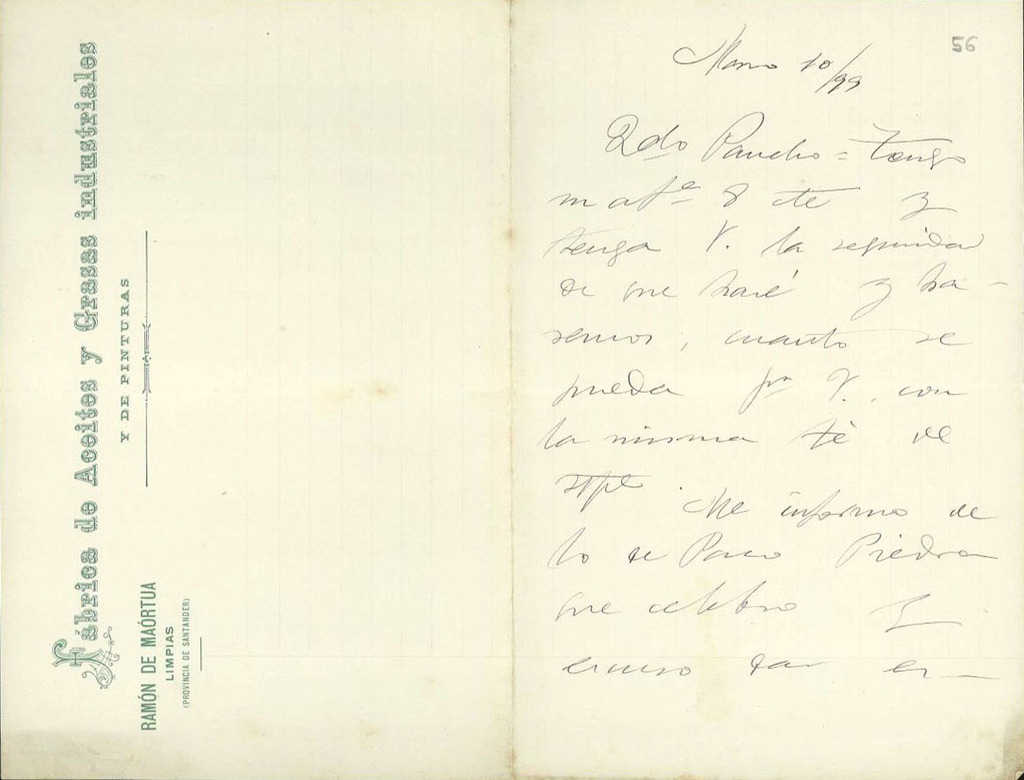 Fábrica de Aceites y Grasas industriales
Y DE PINTURAS
RAMÓN DE MAÓRTUA
LIMPIAS
(PROVINCIA DE SANTANDER)
56
Marzo 10/99
Qdo Pancho = Tengo
su af.ª 8 cte y
tenga V. la seguridad
de que haré y ha-
remos, cuanto se
pueda pr V. con
la misma fé de
sípe. Me informo de
lo de Paco Piedra
que celebro y
excuso dar